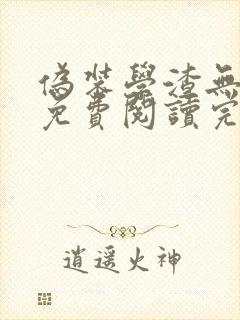 偽裝學渣無
免費閱讀完
逍遥火神